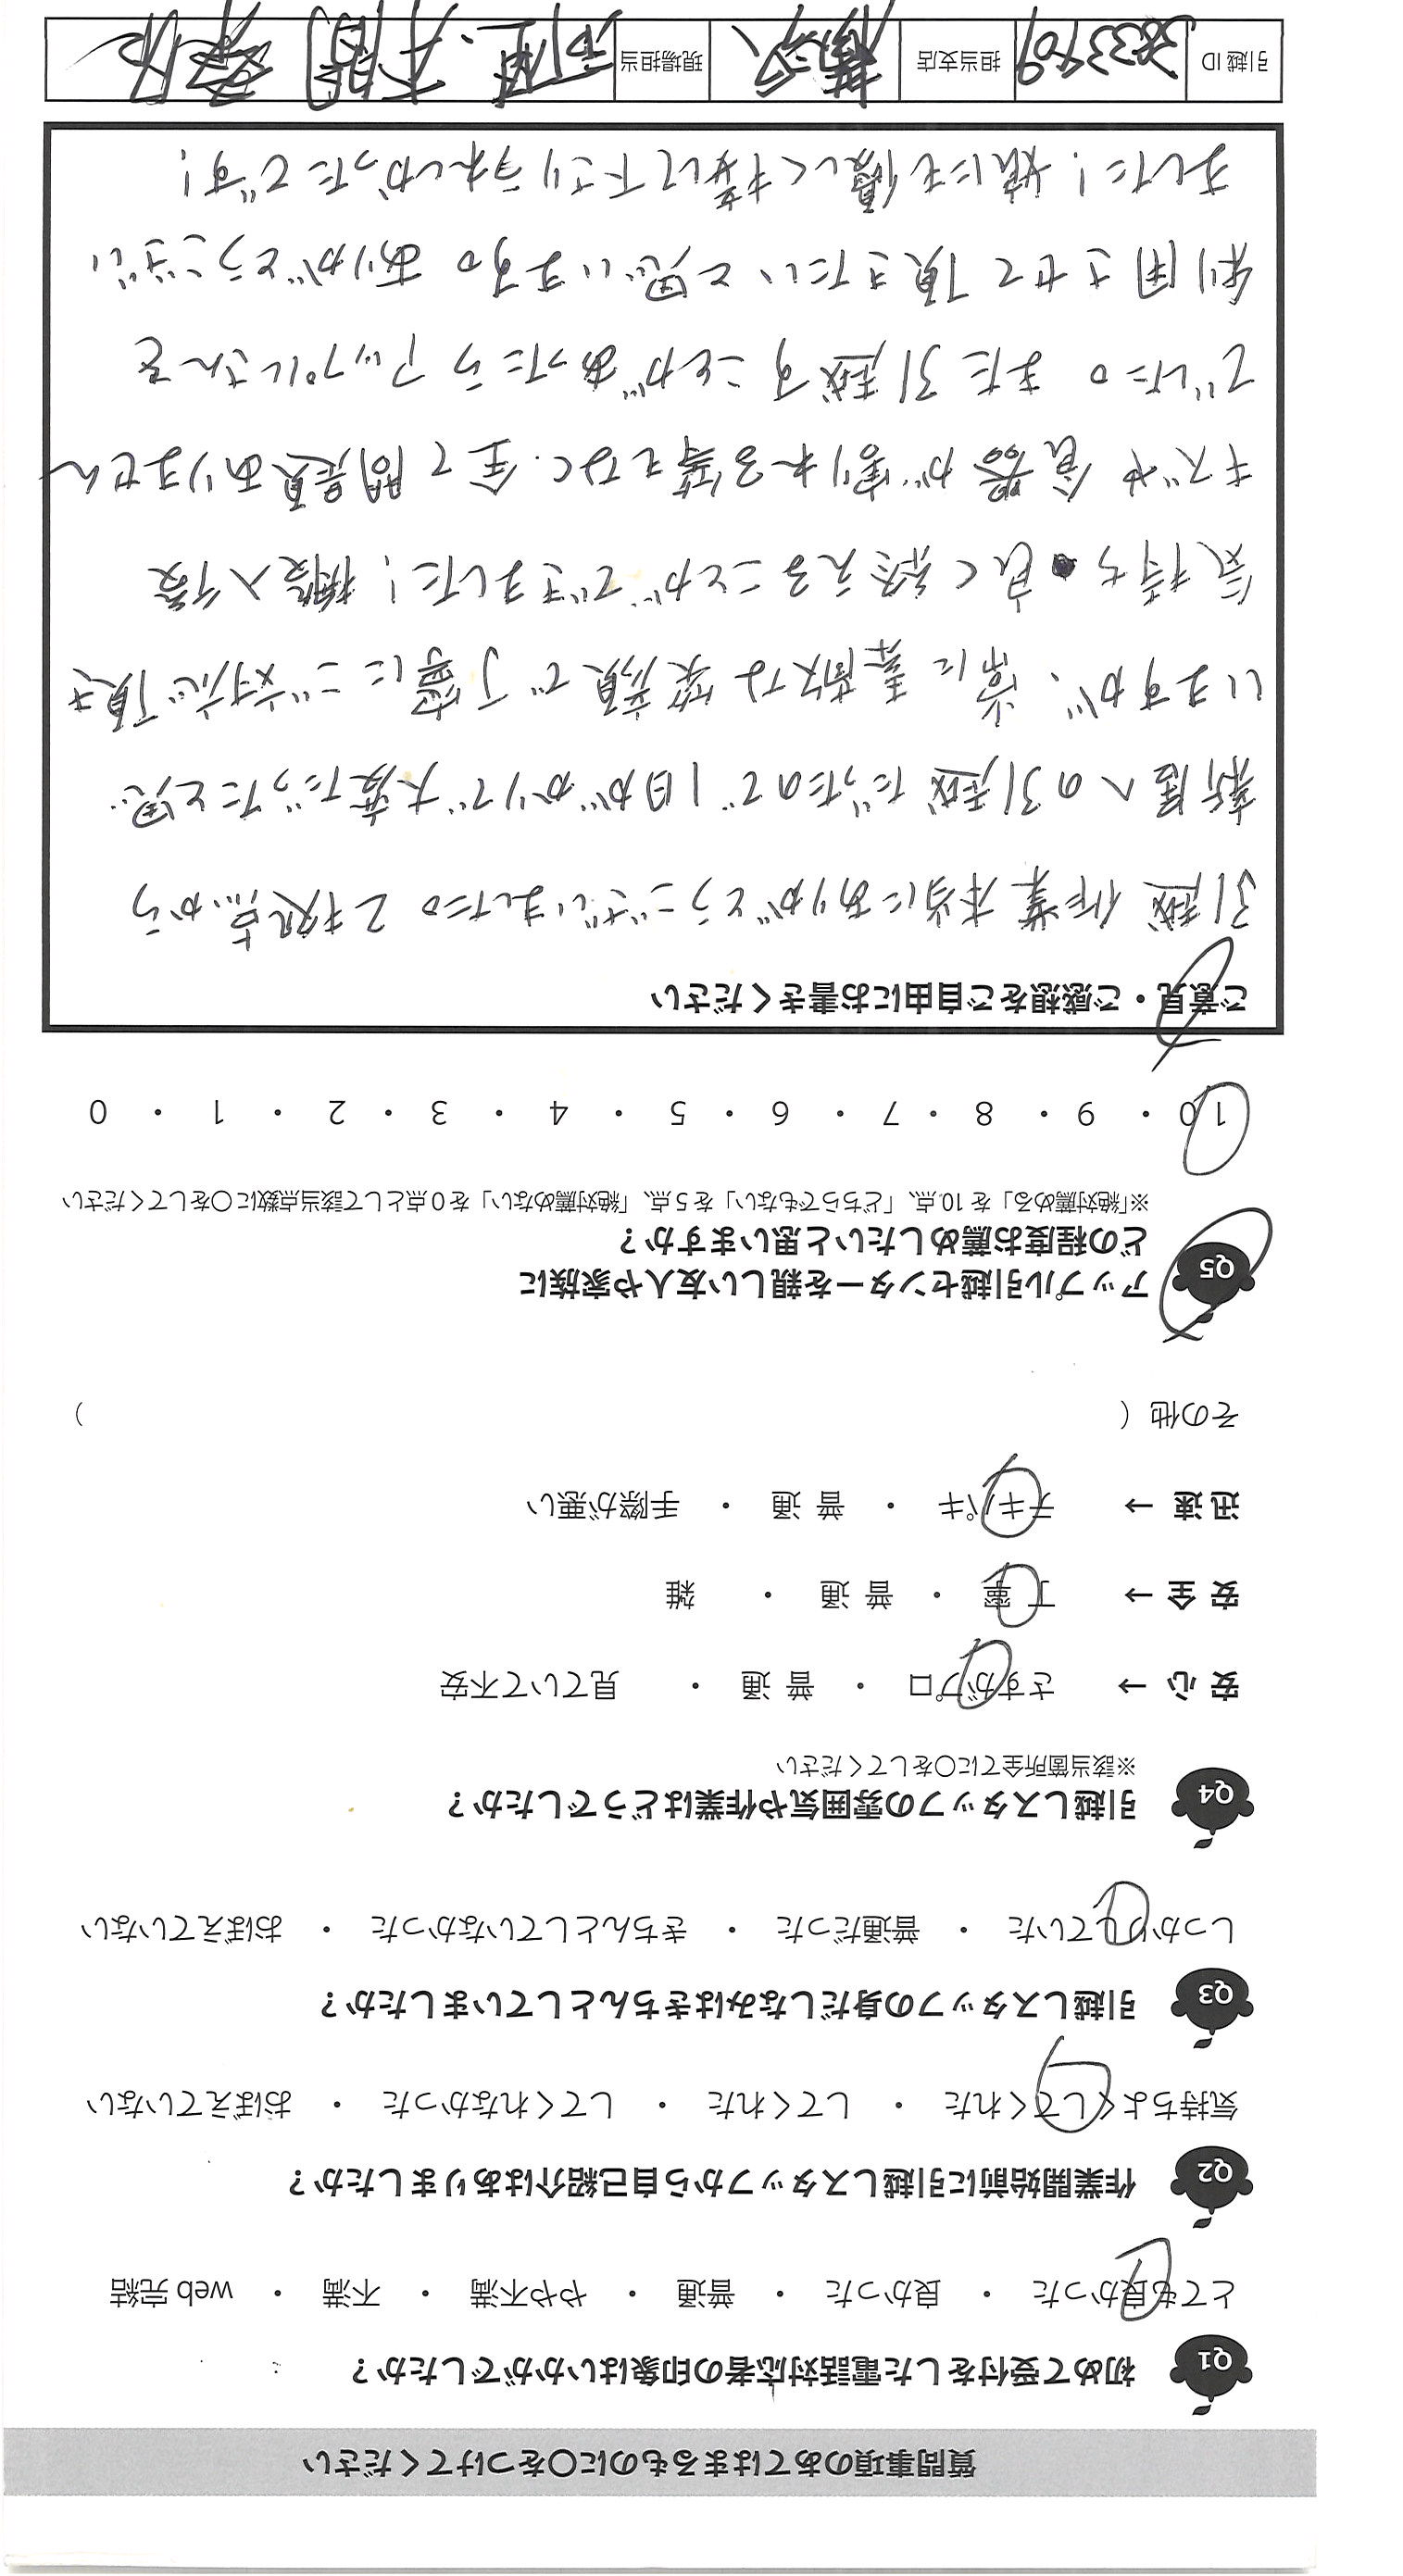 質問事項のあてはまるものに○をつけてください
Q1 初めて受付をした電話対応者の印象はいかがでしたか？
とても良かった ・ 良かった ・ 普通 ・ やや不満 ・ 不満 ・ web 完結
Q2 作業開始前に引越しスタッフから自己紹介はありましたか？
気持ちよくしてくれた ・ してくれた ・ してくれなかった ・ おぼえていない
Q3 引越しスタッフの身だしなみはきちんとしていましたか？
しっかりしていた ・ 普通だった ・ きちんとしていなかった ・ おぼえていない
Q4 引越しスタッフの雰囲気や作業はどうでしたか？
※該当箇所全てに○をしてください
安 心 → さすがプロ ・ 普 通 ・ 見ていて不安
安 全 → 丁 寧 ・ 普 通 ・ 雑
迅 速 → テキパキ ・ 普 通 ・ 手際が悪い
その他（ ）
Q5 アップル引越センターを親しい友人や家族に
どの程度お薦めしたいと思いますか？
※「絶対薦める」を 10 点、「どちらでもない」を 5 点、「絶対薦めない」を 0 点として該当点数に○をしてください
10 ・ 9 ・ 8 ・ 7 ・ 6 ・ 5 ・ 4 ・ 3 ・ 2 ・ 1 ・ 0
ご意見・ご感想をご自由にお書きください
引越作業本当にありがとうございました。2拠点から
新居への引越だったので1日がかりで大変だったと思
いますが、常に素敵な笑顔で丁寧にご対応頂き
気持ち良く終えることができました！搬入後
キズや食器が割れる等もなく、全て問題ありません
でした。また引越すことがあったらアップルさんを
利用させて頂きたいと思います。ありがとうござい
ました！娘にも優しく接して下さりうれしかったです！
引越 ID 担当支店 横浜 現場担当